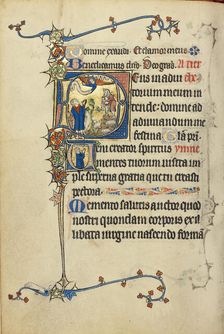 Domine exaudi. Et clamor meus
Benedicamus dño. Deo gras. A tierce
Deus in adiu
torium meum in
tende: domine ad
adiuuandum me
festina. Gla pri.
eni creator spiritus ymne
mentes tuorum uisita im
ple superna gratia que tu creasti
pectora.
Memento salutis auctor quod
nostri quondam corporis ex il
libata uirgine nascendo formā